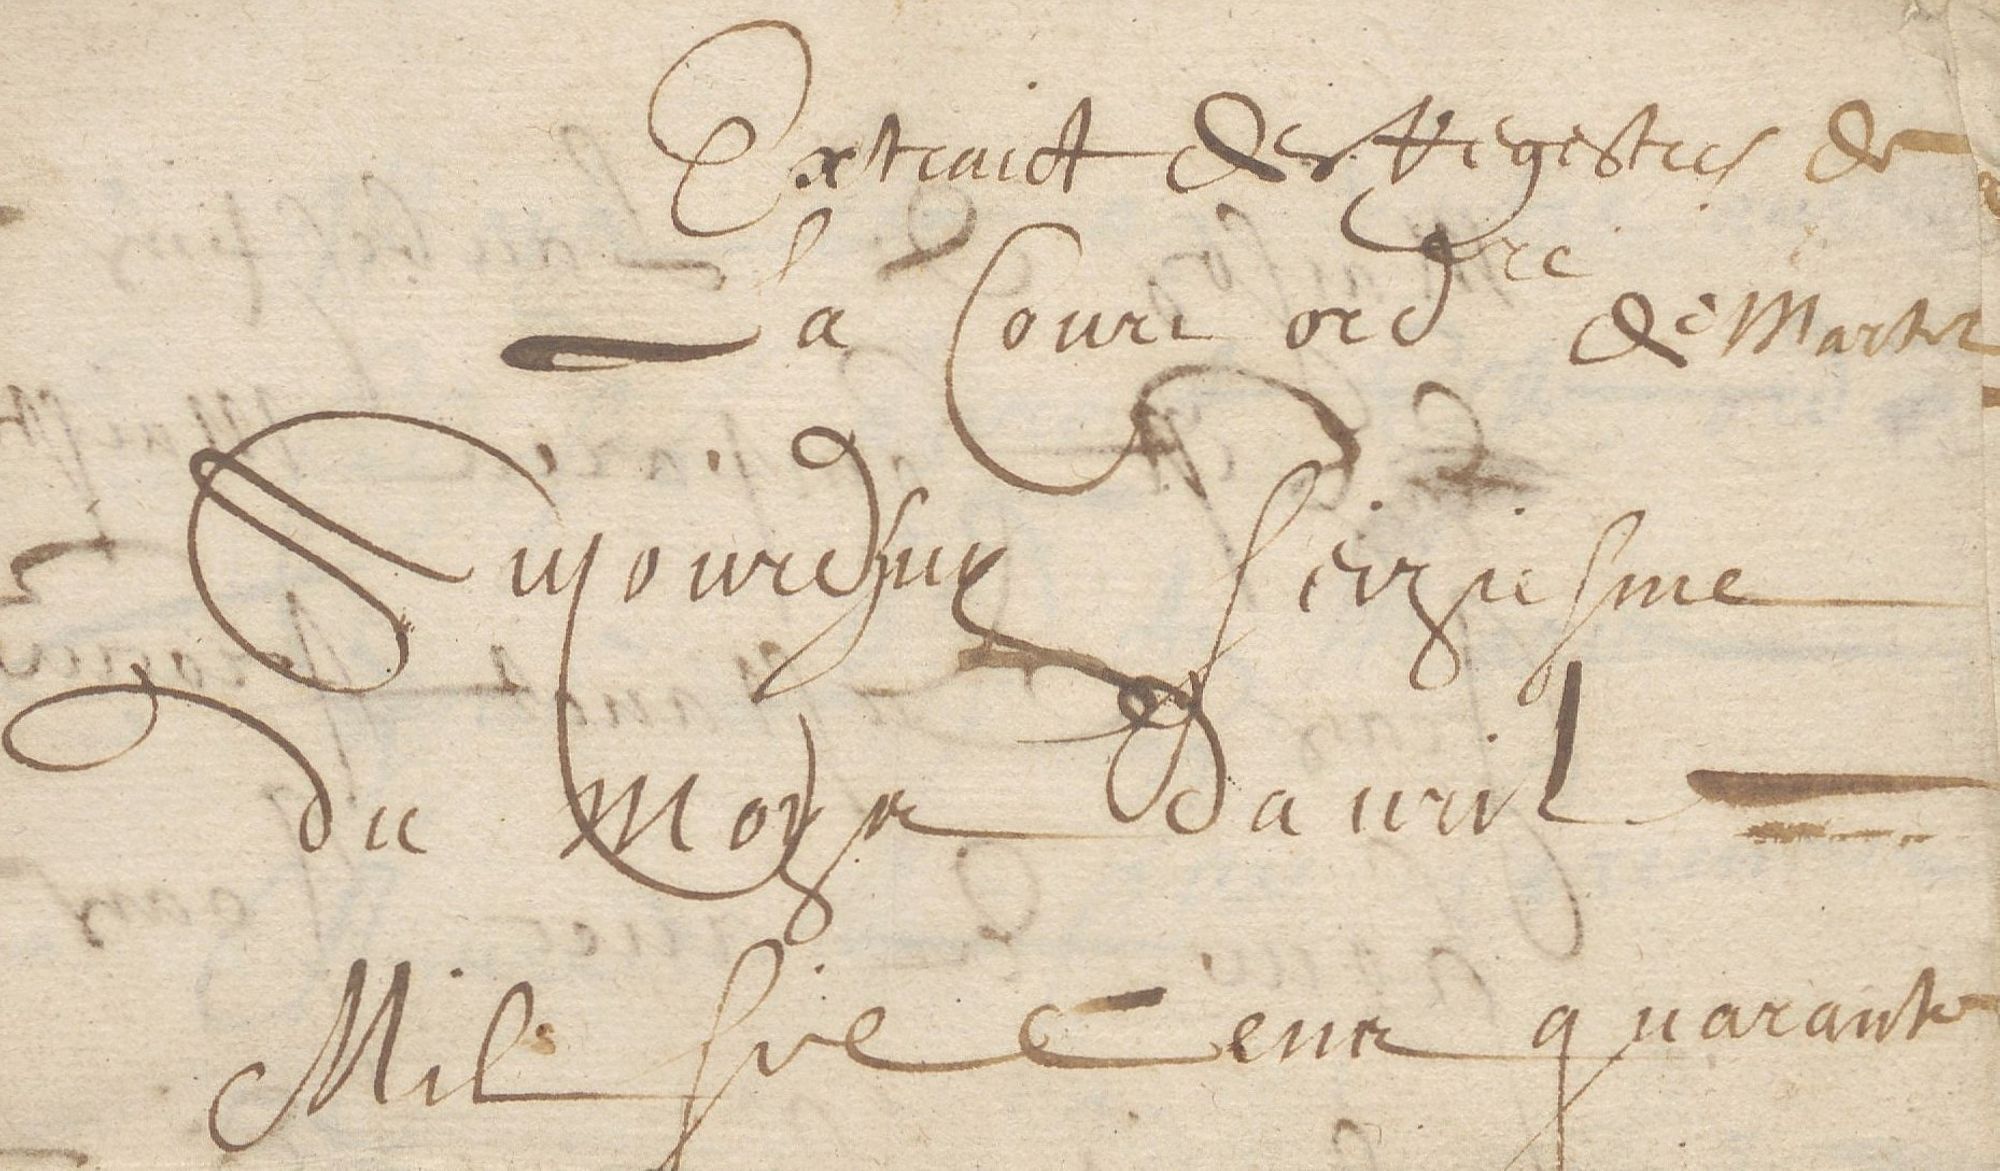 Extraict des Registres de
la Cour ordre de Martel
Aujourdhuy seiziesme
du moys davril
Mil six cent quarante